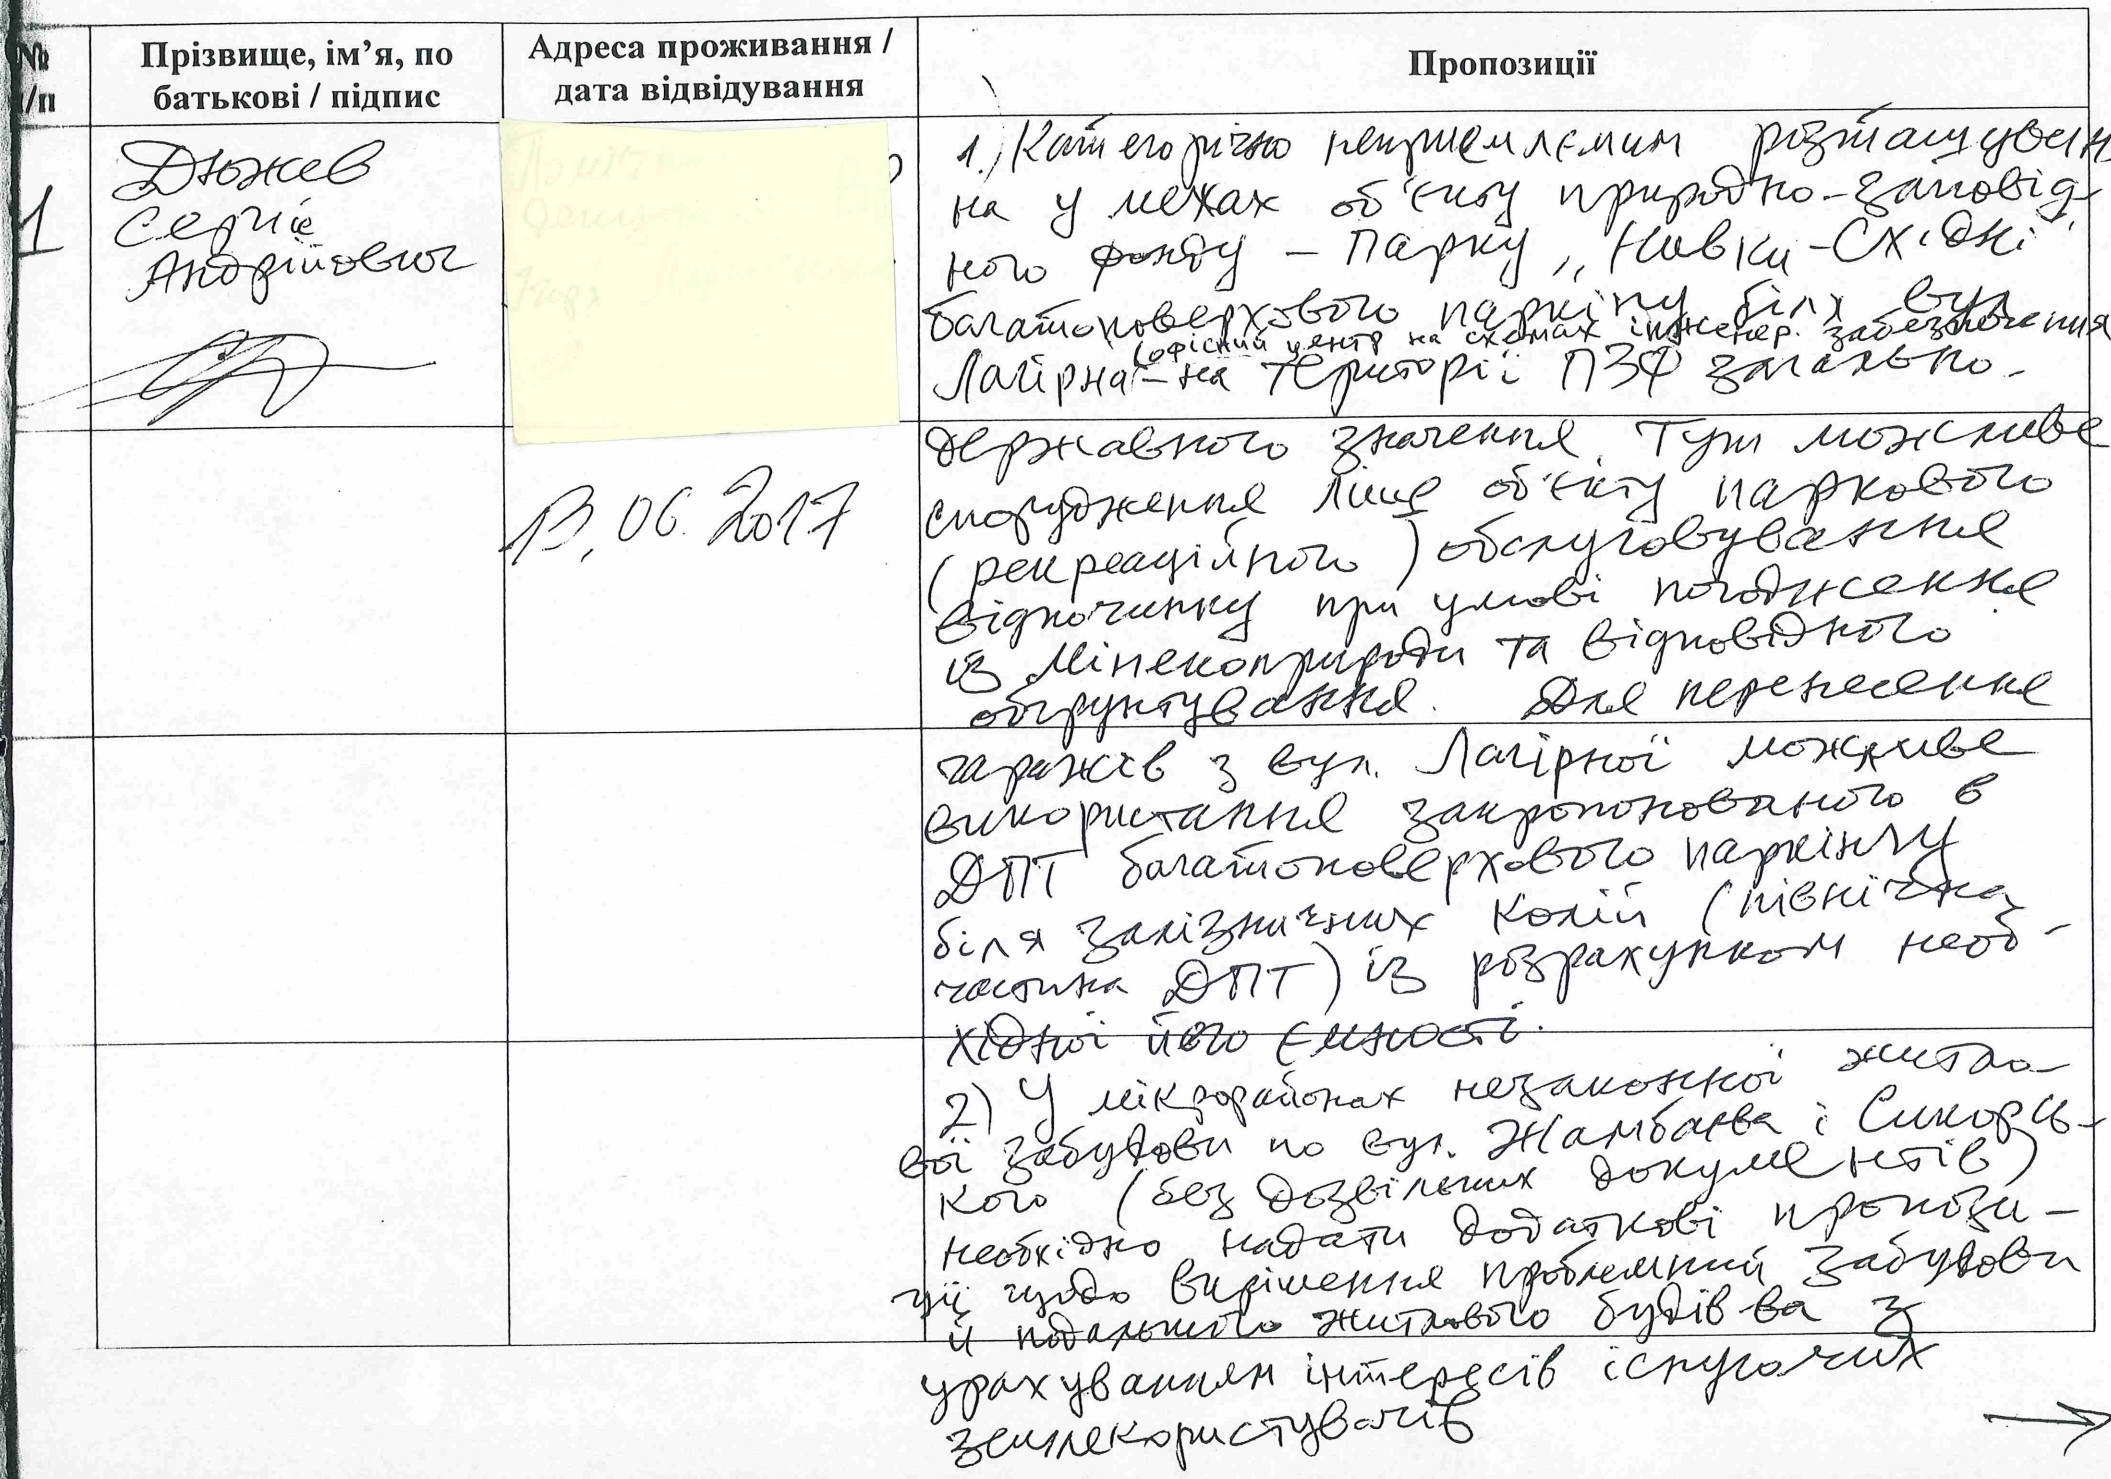 № п/п
Прізвище, ім’я, по батькові / підпис
Адреса проживання / дата відвідування
Пропозиції
1
Дюжев
Сергіє
Андрійович
13.06.2017
1.) Категорично неприємлємим розташуван
на у межах об'єкту природно-заповід-
ного фонду – Парку „Нивки-Східні"
багатоповерхового паркінгу біля вул
(офісний центр на схемах інженер. забезпечення
Лагірна – на території ПЗФ загально-
державного значення. Тут можливе
спорудження лише об'єкту паркового
(рекреаційного) обслуговування
відпочинку при умові погодження
із Мінекоприроди та відповідного
обґрунтування. Для перенесення
гаражів з вул. Лагірної можливе
використання запропонованого в
ДПТ багатоповерхового паркінгу
біля залізничних колій (північна
частина ДПТ) із розрахунком необ-
хідної його ємності.
2) У мікрорайонах незаконної житло-
вої забудови по вул. Жамбаєва і Сикорсь-
кого (без дозвільних документів)
необхідно надати додаткові пропози-
ції щодо вирішення проблемний забудови
й подальшого житлового будів-ва з
урахуванням інтересів існуючих
землекористувачів
→